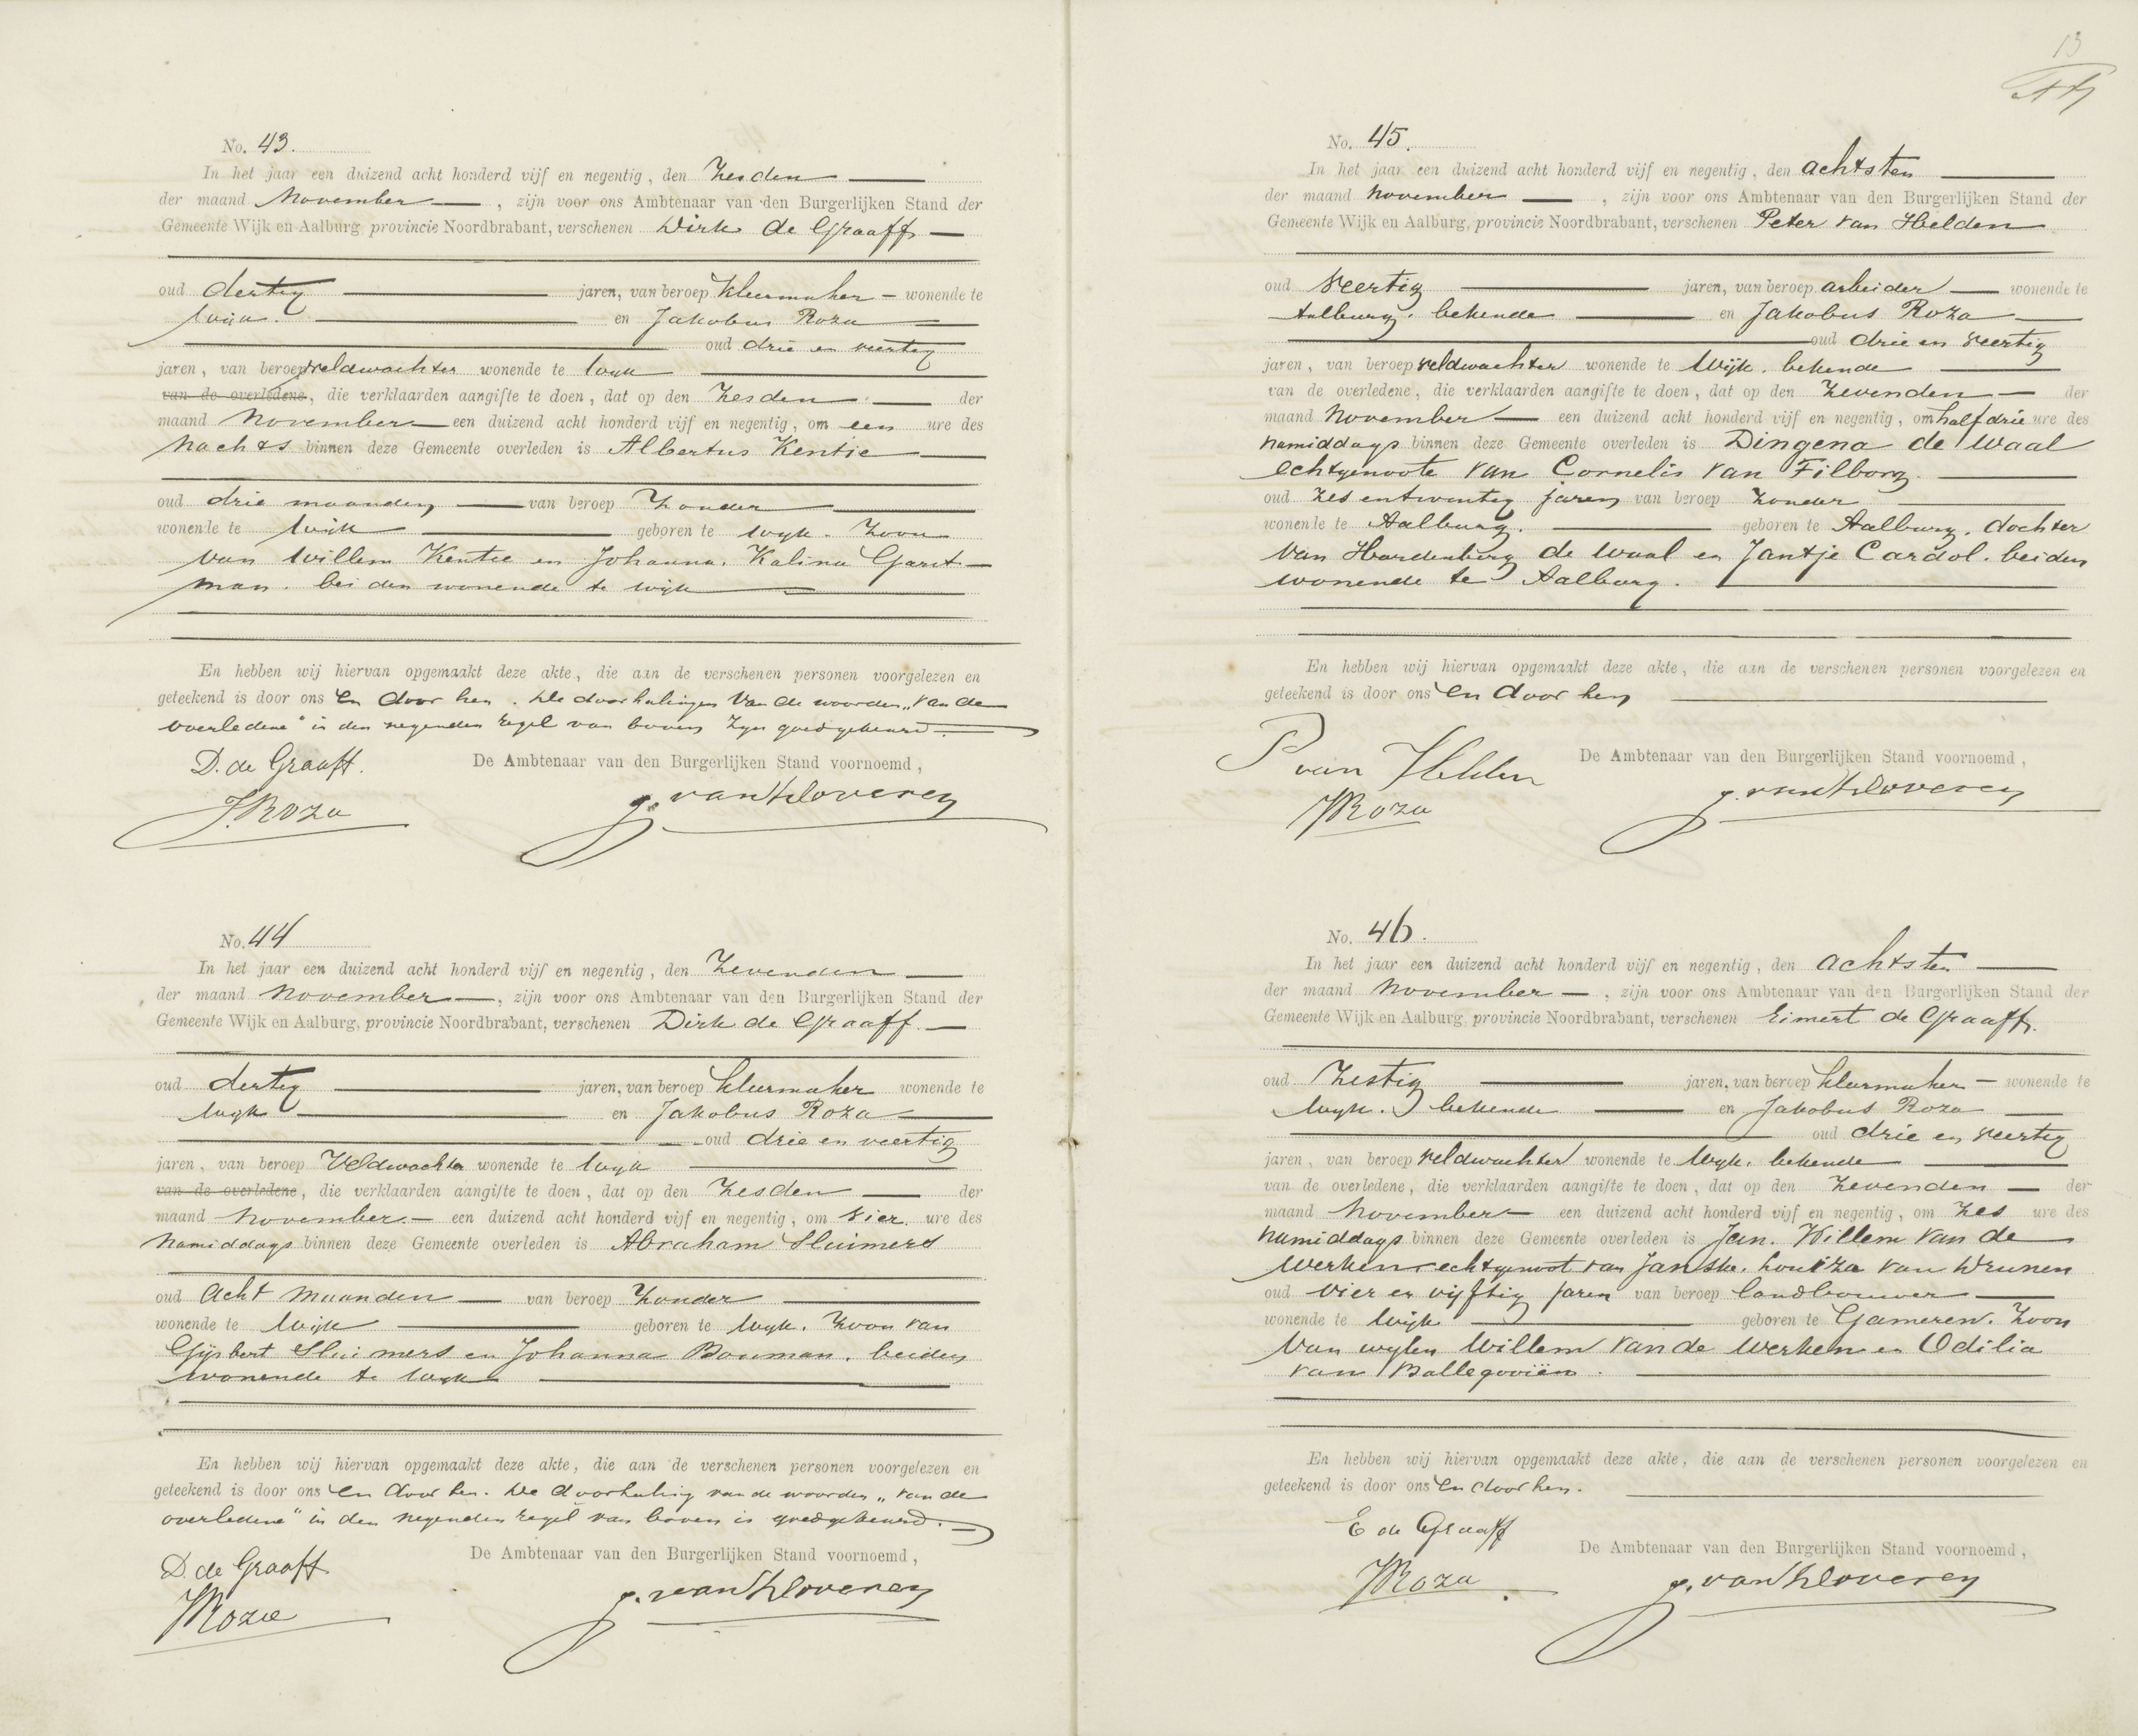 No. 43.
In het jaar een duizend acht honderd vijf en negentig, den Zesden
der maand November, zijn voor ons Ambtenaar van den Burgerlijken Stand der
Gemeente Wijk en Aalburg, provincie Noordbrabant, verschenen Dirk de Graaff
oud dertig jaren, van beroep kleermaker wonende te
Wijk. en Jakobus Roza
oud drie en veertig
jaren, van beroep veldwachter wonende te Wijk
van de overledene, die verklaarden aangifte te doen, dat op den Zesden der
maand November een duizend acht honderd vijf en negentig, om een ure des
Nachts binnen deze Gemeente overleden is Albertus Kentie
oud drie maanden van beroep Zonder
wonende te Wijk geboren te Wijk. Zoon
van Willem Kentie en Johanna. Kalina Garit
man. beiden wonende te Wijk
En hebben wij hiervan opgemaakt deze akte, die aan de verschenen personen voorgelezen en
geteekend is door ons en door hen. De doorhalingen van de woorden „van de
overledene" in den negenden regel van boven zijn goedgekeurd.
D. de Graaff.
De Ambtenaar van den Burgerlijken Stand voornoemd,
J. Roza
No. 44
In het jaar een duizend acht honderd vijf en negentig, den Zevenden
der maand November, zijn voor ons Ambtenaar van den Burgerlijken Stand der
Gemeente Wijk en Aalburg, provincie Noordbrabant, verschenen Dirk de Graaff.
oud dertig jaren, van beroep kleermaker wonende te
Wijk en Jakobus Roza
oud drie en veertig
jaren, van beroep Veldwachter wonende te Wijk
van de overledene, die verklaarden aangifte te doen, dat op den Zesden der
maand November. een duizend acht honderd vijf en negentig, om vier. ure des
Namiddags binnen deze Gemeente overleden is Abraham Sluimers
oud acht maanden van beroep Zonder
wonende te Wijk geboren te Wijk. Zoon van
Gijsbert Sluimers en Johanna Bouman. beiden
wonende te Wijk
En hebben wij hiervan opgemaakt deze akte, die aan de verschenen personen voorgelezen en
geteekend is door ons en door hen. De doorhaling van de woorden „van de
overledene" in den negenden regel van boven is goedgekeurd.
D. de Graaff
De Ambtenaar van den Burgerlijken Stand voornoemd,
J Roza
13
No. 45.
In het jaar een duizend acht honderd vijf en negentig, den achtsten
der maand November, zijn voor ons Ambtenaar van den Burgerlijken Stand der
Gemeente Wijk en Aalburg, provincie Noordbrabant, verschenen Peter van Helden
oud veertig jaren, van beroep arbeider wonende te
Aalburg. bekende en Jakobus Roza
oud drie en veertig
jaren, van beroep veldwachter wonende te Wijk. bekende
van de overledene, die verklaarden aangifte te doen, dat op den Zevenden der
maand November een duizend acht honderd vijf en negentig, om half drie ure des
namiddags binnen deze Gemeente overleden is Dingena de Waal
echtgenoote van Cornelis van Filborg.
oud zes en twintig jaren van beroep zonder
wonende te Aalburg. geboren te Aalburg. dochter
van Hardenberg de Waal en Jantje Cardol. beiden
wonende te Aalburg.
En hebben wij hiervan opgemaakt deze akte, die aan de verschenen personen voorgelezen en
geteekend is door ons en door hen
P van Helden
De Ambtenaar van den Burgerlijken Stand voornoemd,
J Roza
No. 46.
In het jaar een duizend acht honderd vijf en negentig, den achtsten
der maand November, zijn voor ons Ambtenaar van den Burgerlijken Stand der
Gemeente Wijk en Aalburg, provincie Noordbrabant, verschenen Eimert de Graaff.
oud Zestig jaren, van beroep kleermaker wonende te
Wijk. bekende en Jakobus Roza
oud drie en veertig
jaren, van beroep veldwachter wonende te Wijk. bekende
van de overledene, die verklaarden aangifte te doen, dat op den Zevenden der
maand November een duizend acht honderd vijf en negentig, om zes ure des
namiddags binnen deze Gemeente overleden is Jan. Willem van de
Werken echtgenoot van Janske. Louiza van Drunen
oud vier en vijftig jaren van beroep landbouwer
wonende te Wijk geboren te Gameren. Zoon
van wijlen Willem van de Werken en Odilia
van Ballegooiën.
En hebben wij hiervan opgemaakt deze akte, die aan de verschenen personen voorgelezen en
geteekend is door ons en door hen.
E de Graaff
De Ambtenaar van den Burgerlijken Stand voornoemd,
J Roza